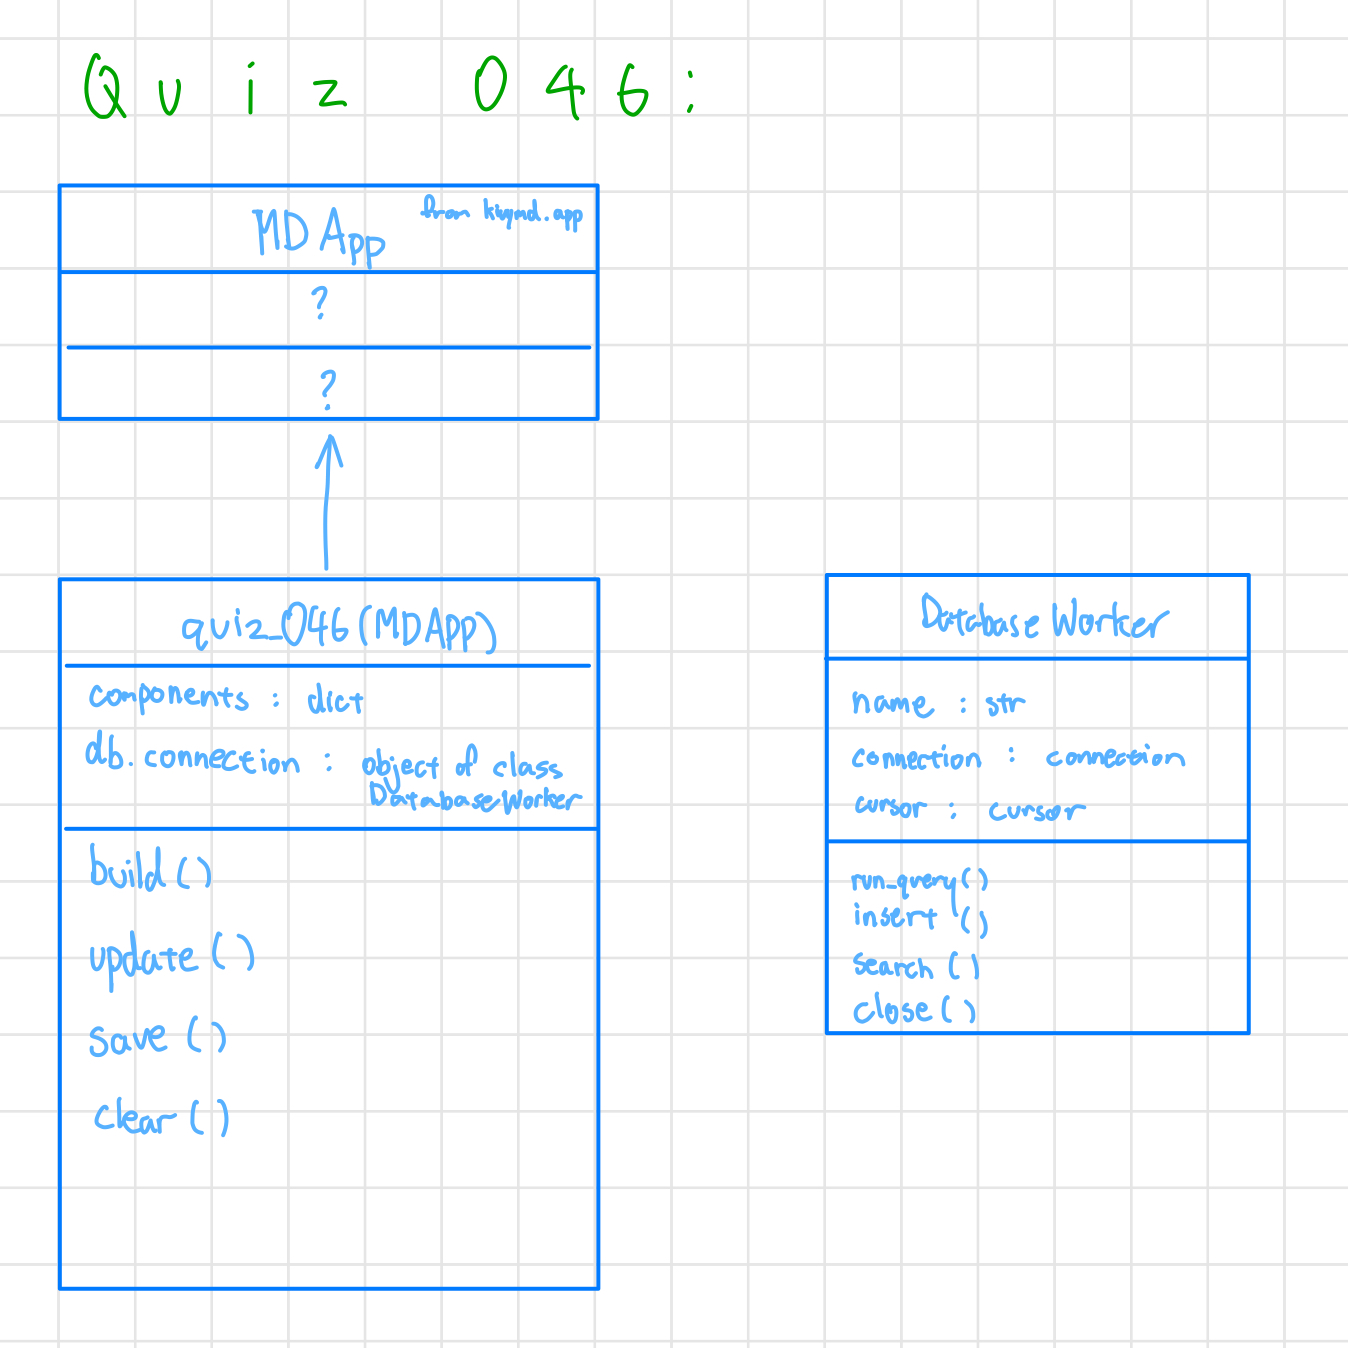 Quiz 046:
MDApp
from kivymd.app
?
?
quiz_046(MDApp)
components : dict
db.connection : object of class
DatabaseWorker
build()
update()
save()
clear()
DatabaseWorker
name : str
connection : connection
cursor : cursor
run_query()
insert()
search()
close()